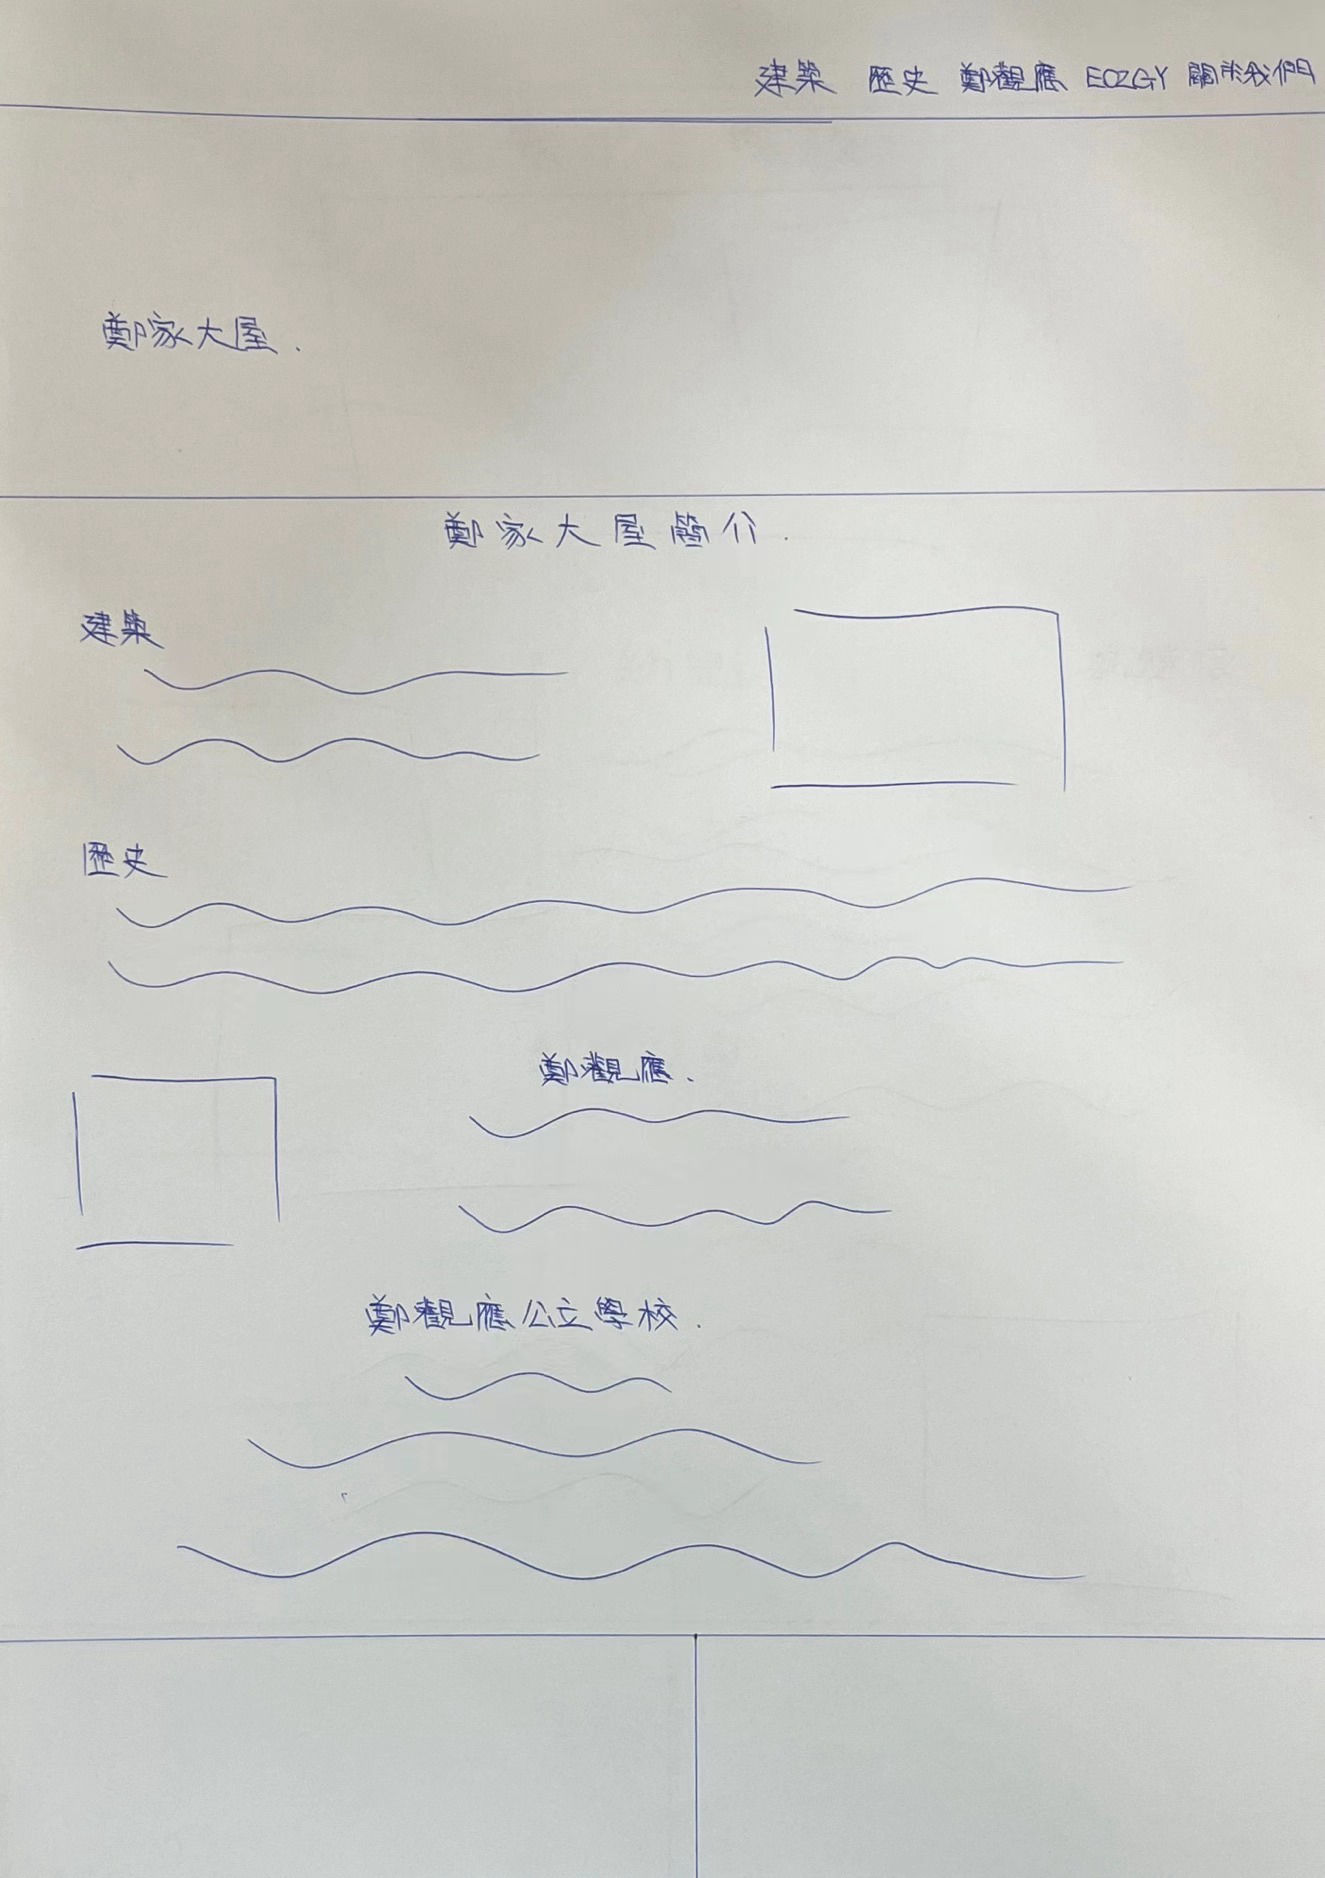 建築 歷史 鄭觀應 EOZGY 關於我們
鄭家大屋.
鄭家大屋簡介.
建築
歷史
鄭觀應.
鄭觀應公立學校.